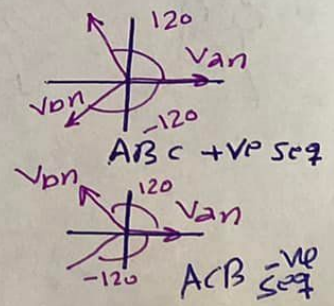 120
Van
Vbn
-120
ABC +ve seq
Vbn
120
Van
-120
ACB -ve seq